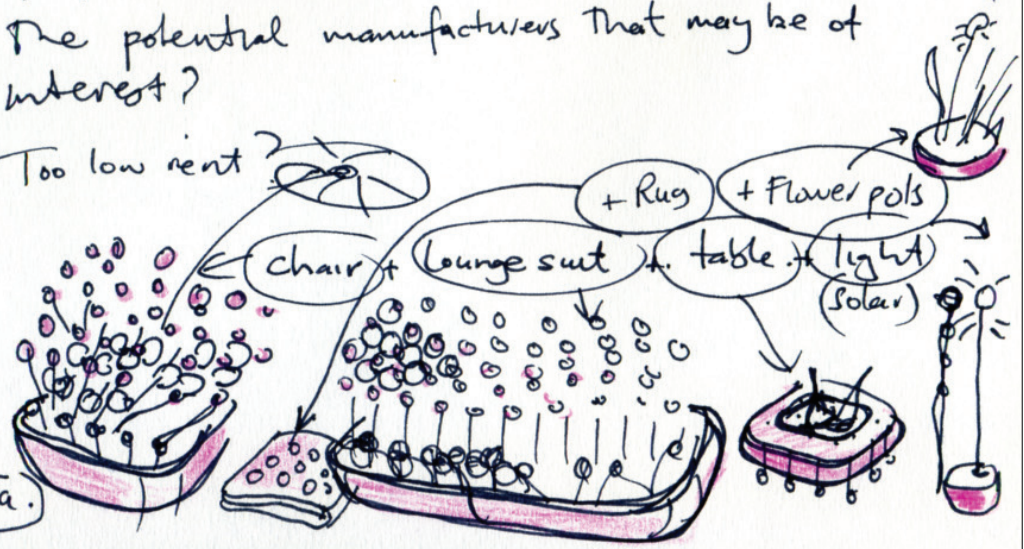 The potential manufacturers that may be of
interest?
Too low rent?
+ Rug + Flower pots
chair + Lounge suit + table + light
(solar)
a.